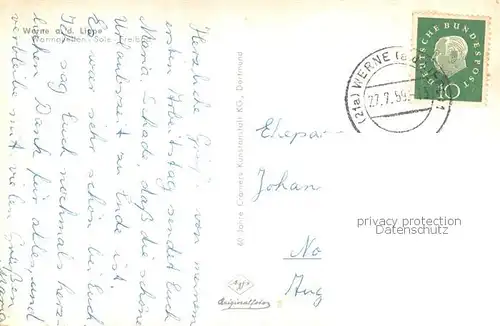 Werne a. d. Lippe
Wannovellen - Sole - Freib
Herzliche Grüße von meinem
ersten Arbeitstag sendet Euch
Maria. Schade, daß die schöne
Urlaubszeit zu Ende ist.
Es war sehr schön bei Euch.
Ich sag Euch nochmals herz-
lichen Dank für alles, und
verbleibe mit vielen Grüßen
Maria
40 Jahre Cramers Kunstanstalt KG., Dortmund
Agfa
Originalfoto
Ehepaar
Johan
No
Aug
(21a) WERNE (a d
27.7.59
DEUTSCHE BUNDESPOST
10
privacy protection
Datenschutz